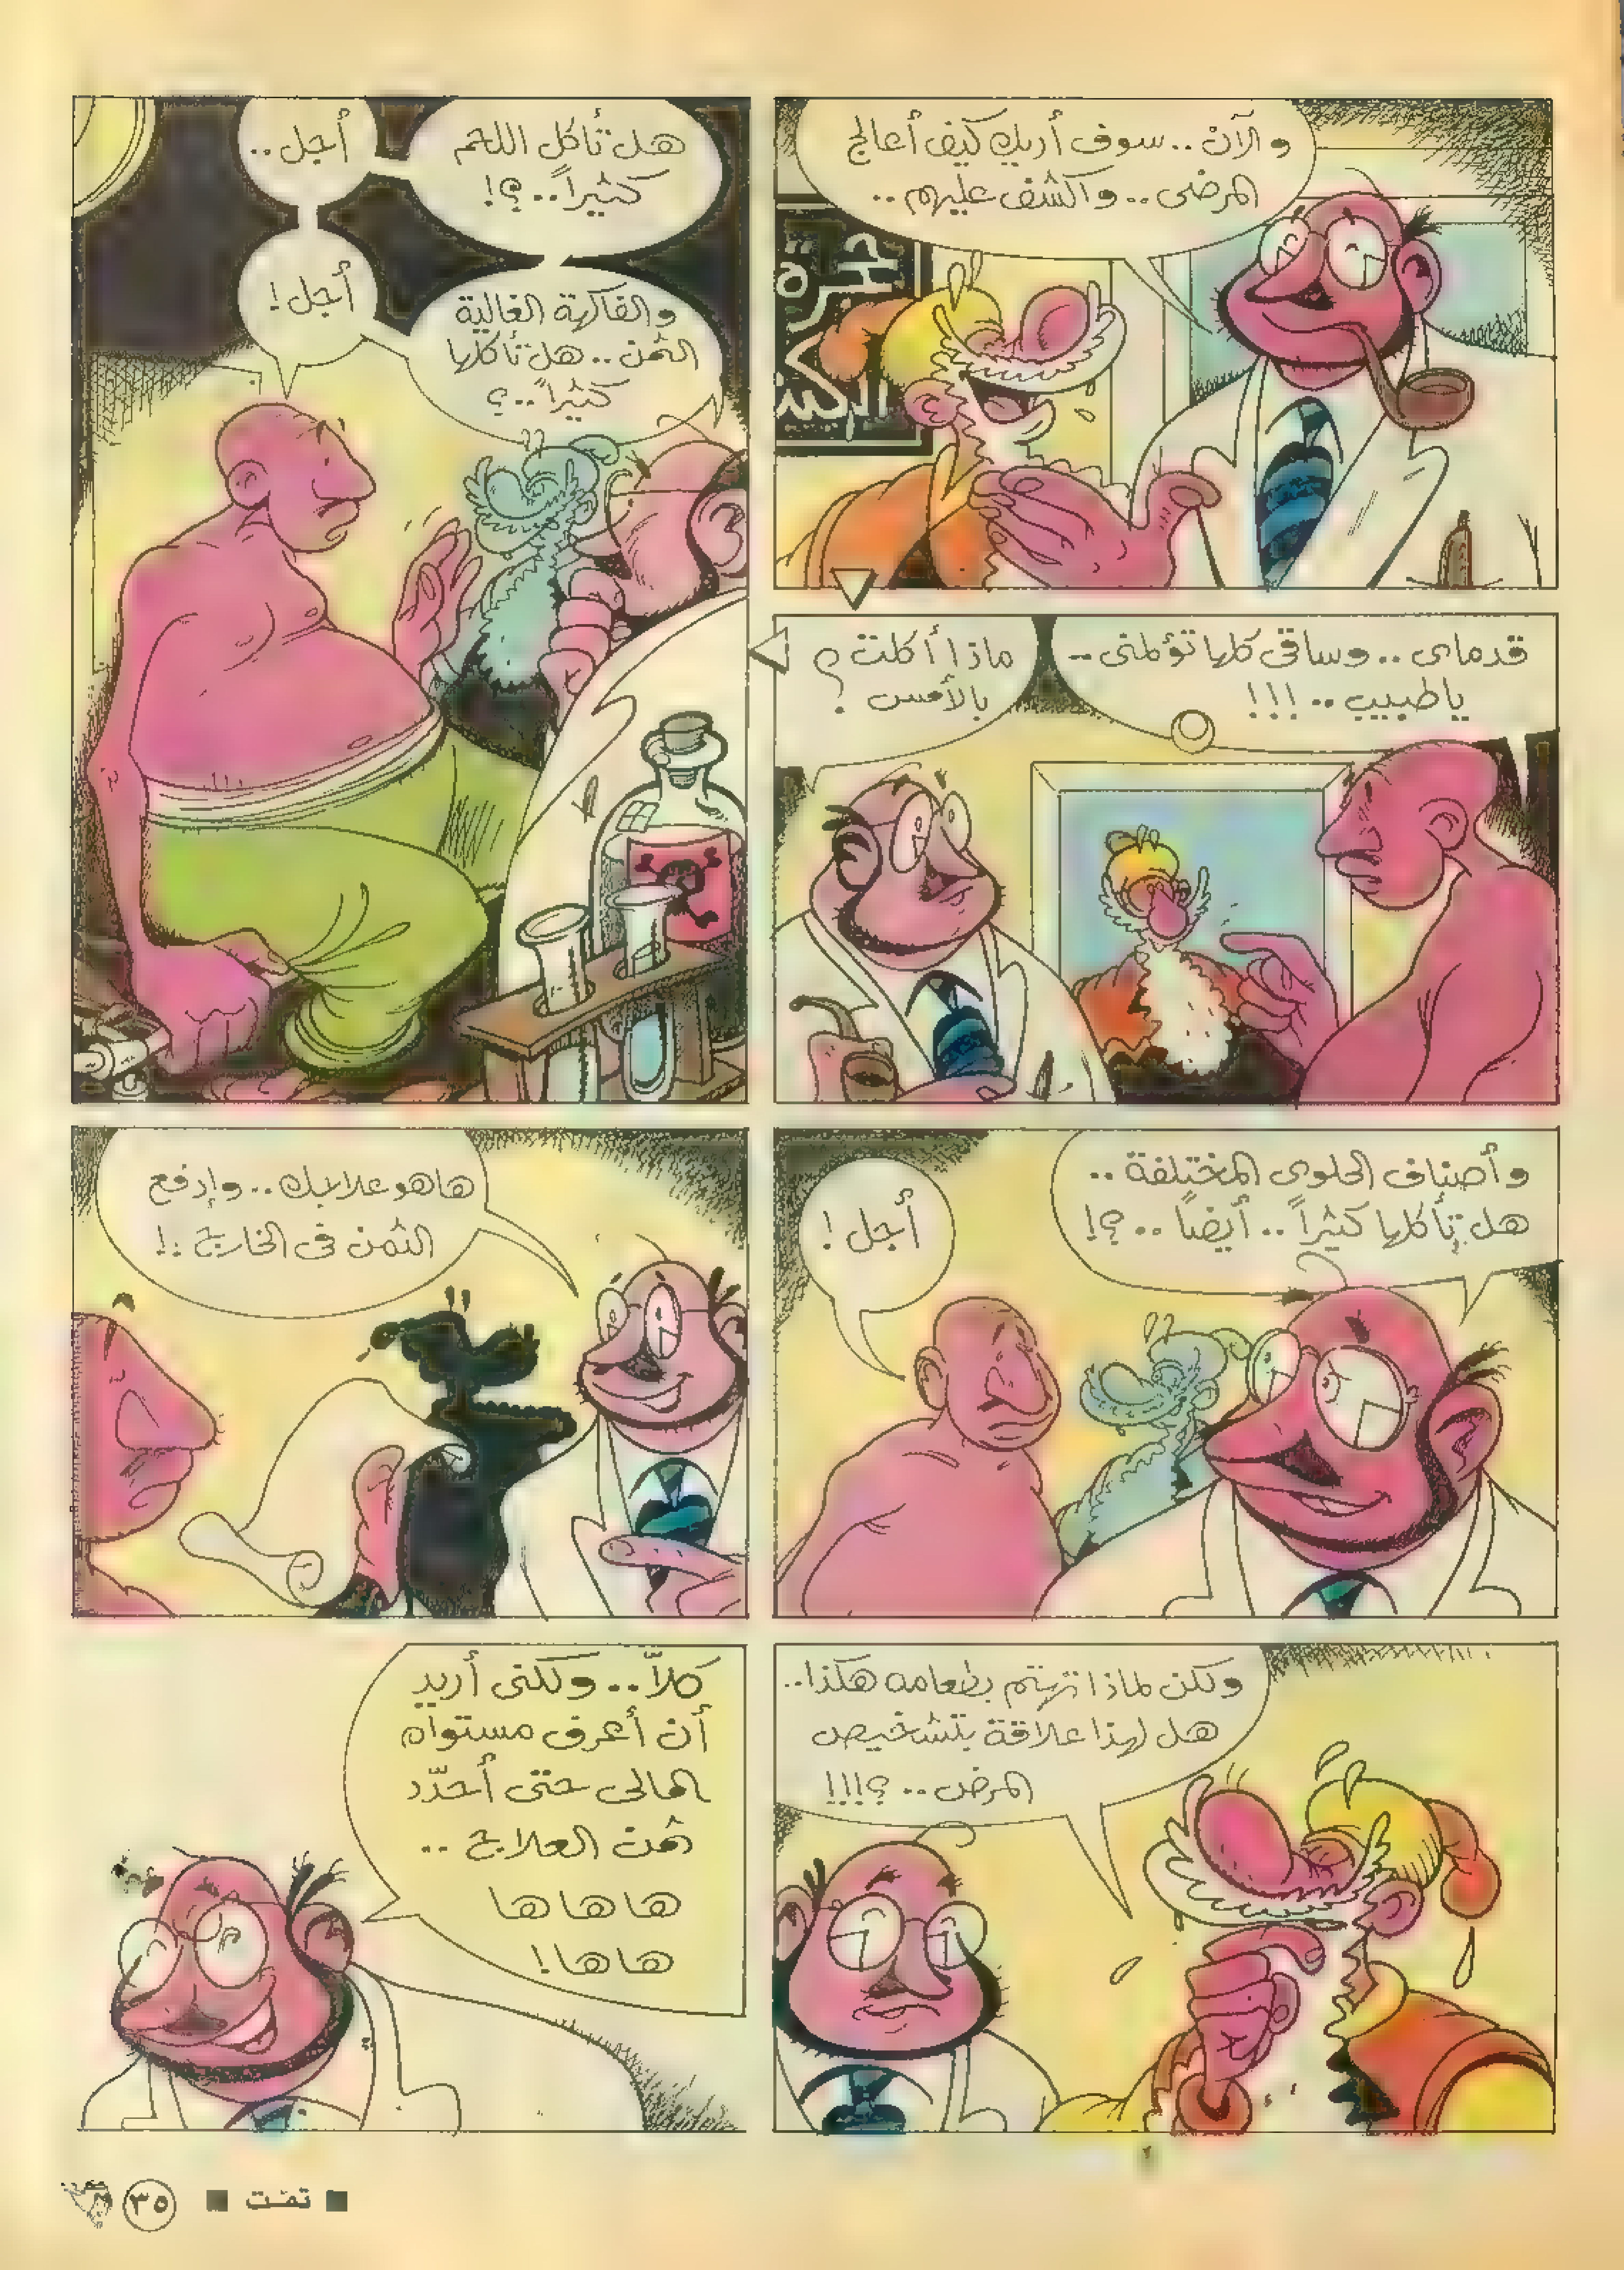 والآن.. سوف أريك كيف أعالج
المرضى.. وأكشف عليهم..
حجرة
الكشف
قدماى.. وساقى كلها تؤلمنى..
ياطبيب..!!!
ماذا أكلت
بالأمس؟؟
هل تأكل اللحم
كثيراً..؟!
أجل..
والفاكهة الغالية
الثمن.. هل تأكلها
كثيراً..؟
أجل!
وأصناف الحلوى المختلفة..
هل تأكلها كثيراً.. أيضاً..؟!
أجل!
هاهو علاجك.. وإدفع
الثمن فى الخارج..!
ولكن لماذا تهتم بطعامه هكذا..
هل لهذا علاقة بتشخيص
المرض..؟!!!
كلاّ.. ولكنى أريد
أن أعرف مستواه
المالى حتى أحدّد
ثمن العلاج..
هاهاها
هاها!
■ تمت ■ ٣٥